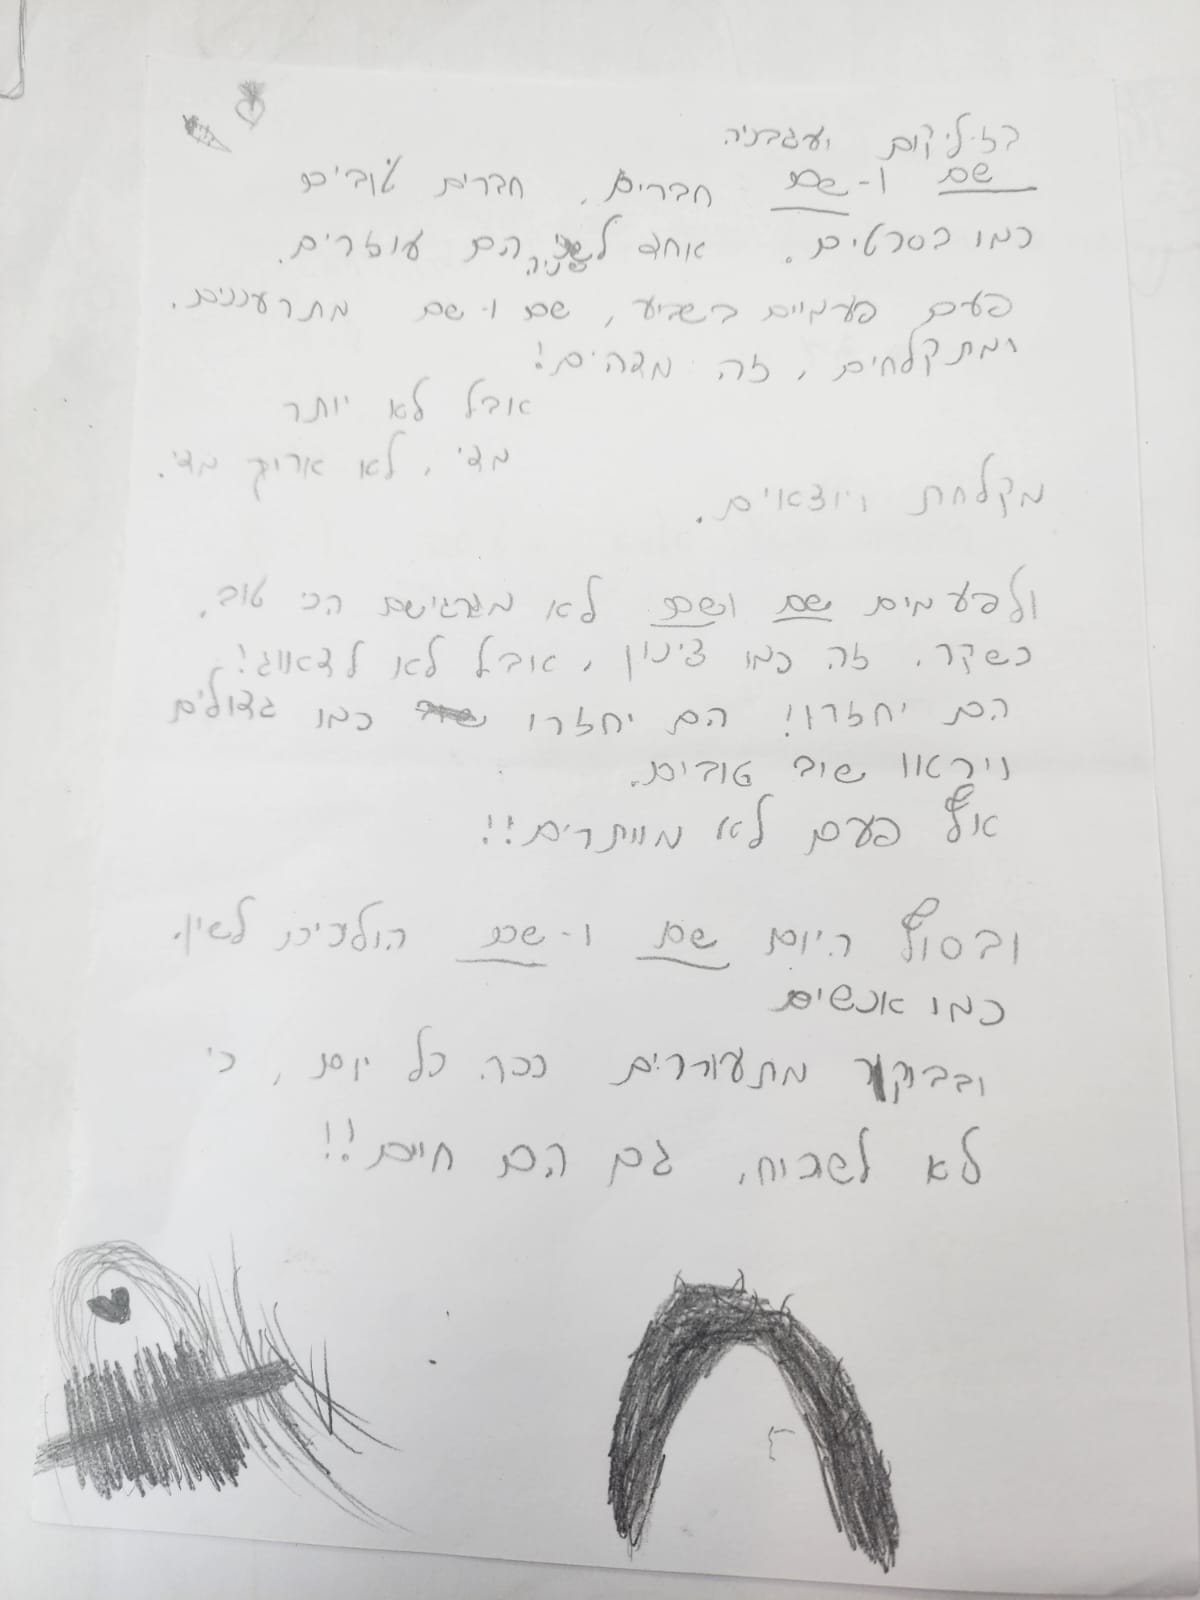 בזיליקום ועגבניה
שם ו-שם חברים, חברים טובים
כמו בסרטים. אחד לשניה הם עוזרים.
פעם פעמיים בשבוע, שם ו-שם מתרעננים.
ומתקלחים, זה מדהים!
אבל לא יותר
מדי, לא ארוך מדי.
מקלחת ויוצאים.
ולפעמים שם ושם לא מרגישים הכי טוב,
כשקר. זה כמו צינון, אבל לא לדאוג!
הם יחזרו! הם יחזרו כמו גדולים
ויראו שוב טובים.
אף פעם לא מוותרים!!
ובסוף היום שם ו-שם הולכים לשון.
כמו אנשים
ובבוקר מתעוררים ככה כל יום, כי
לא לשכוח, גם הם חיים!!